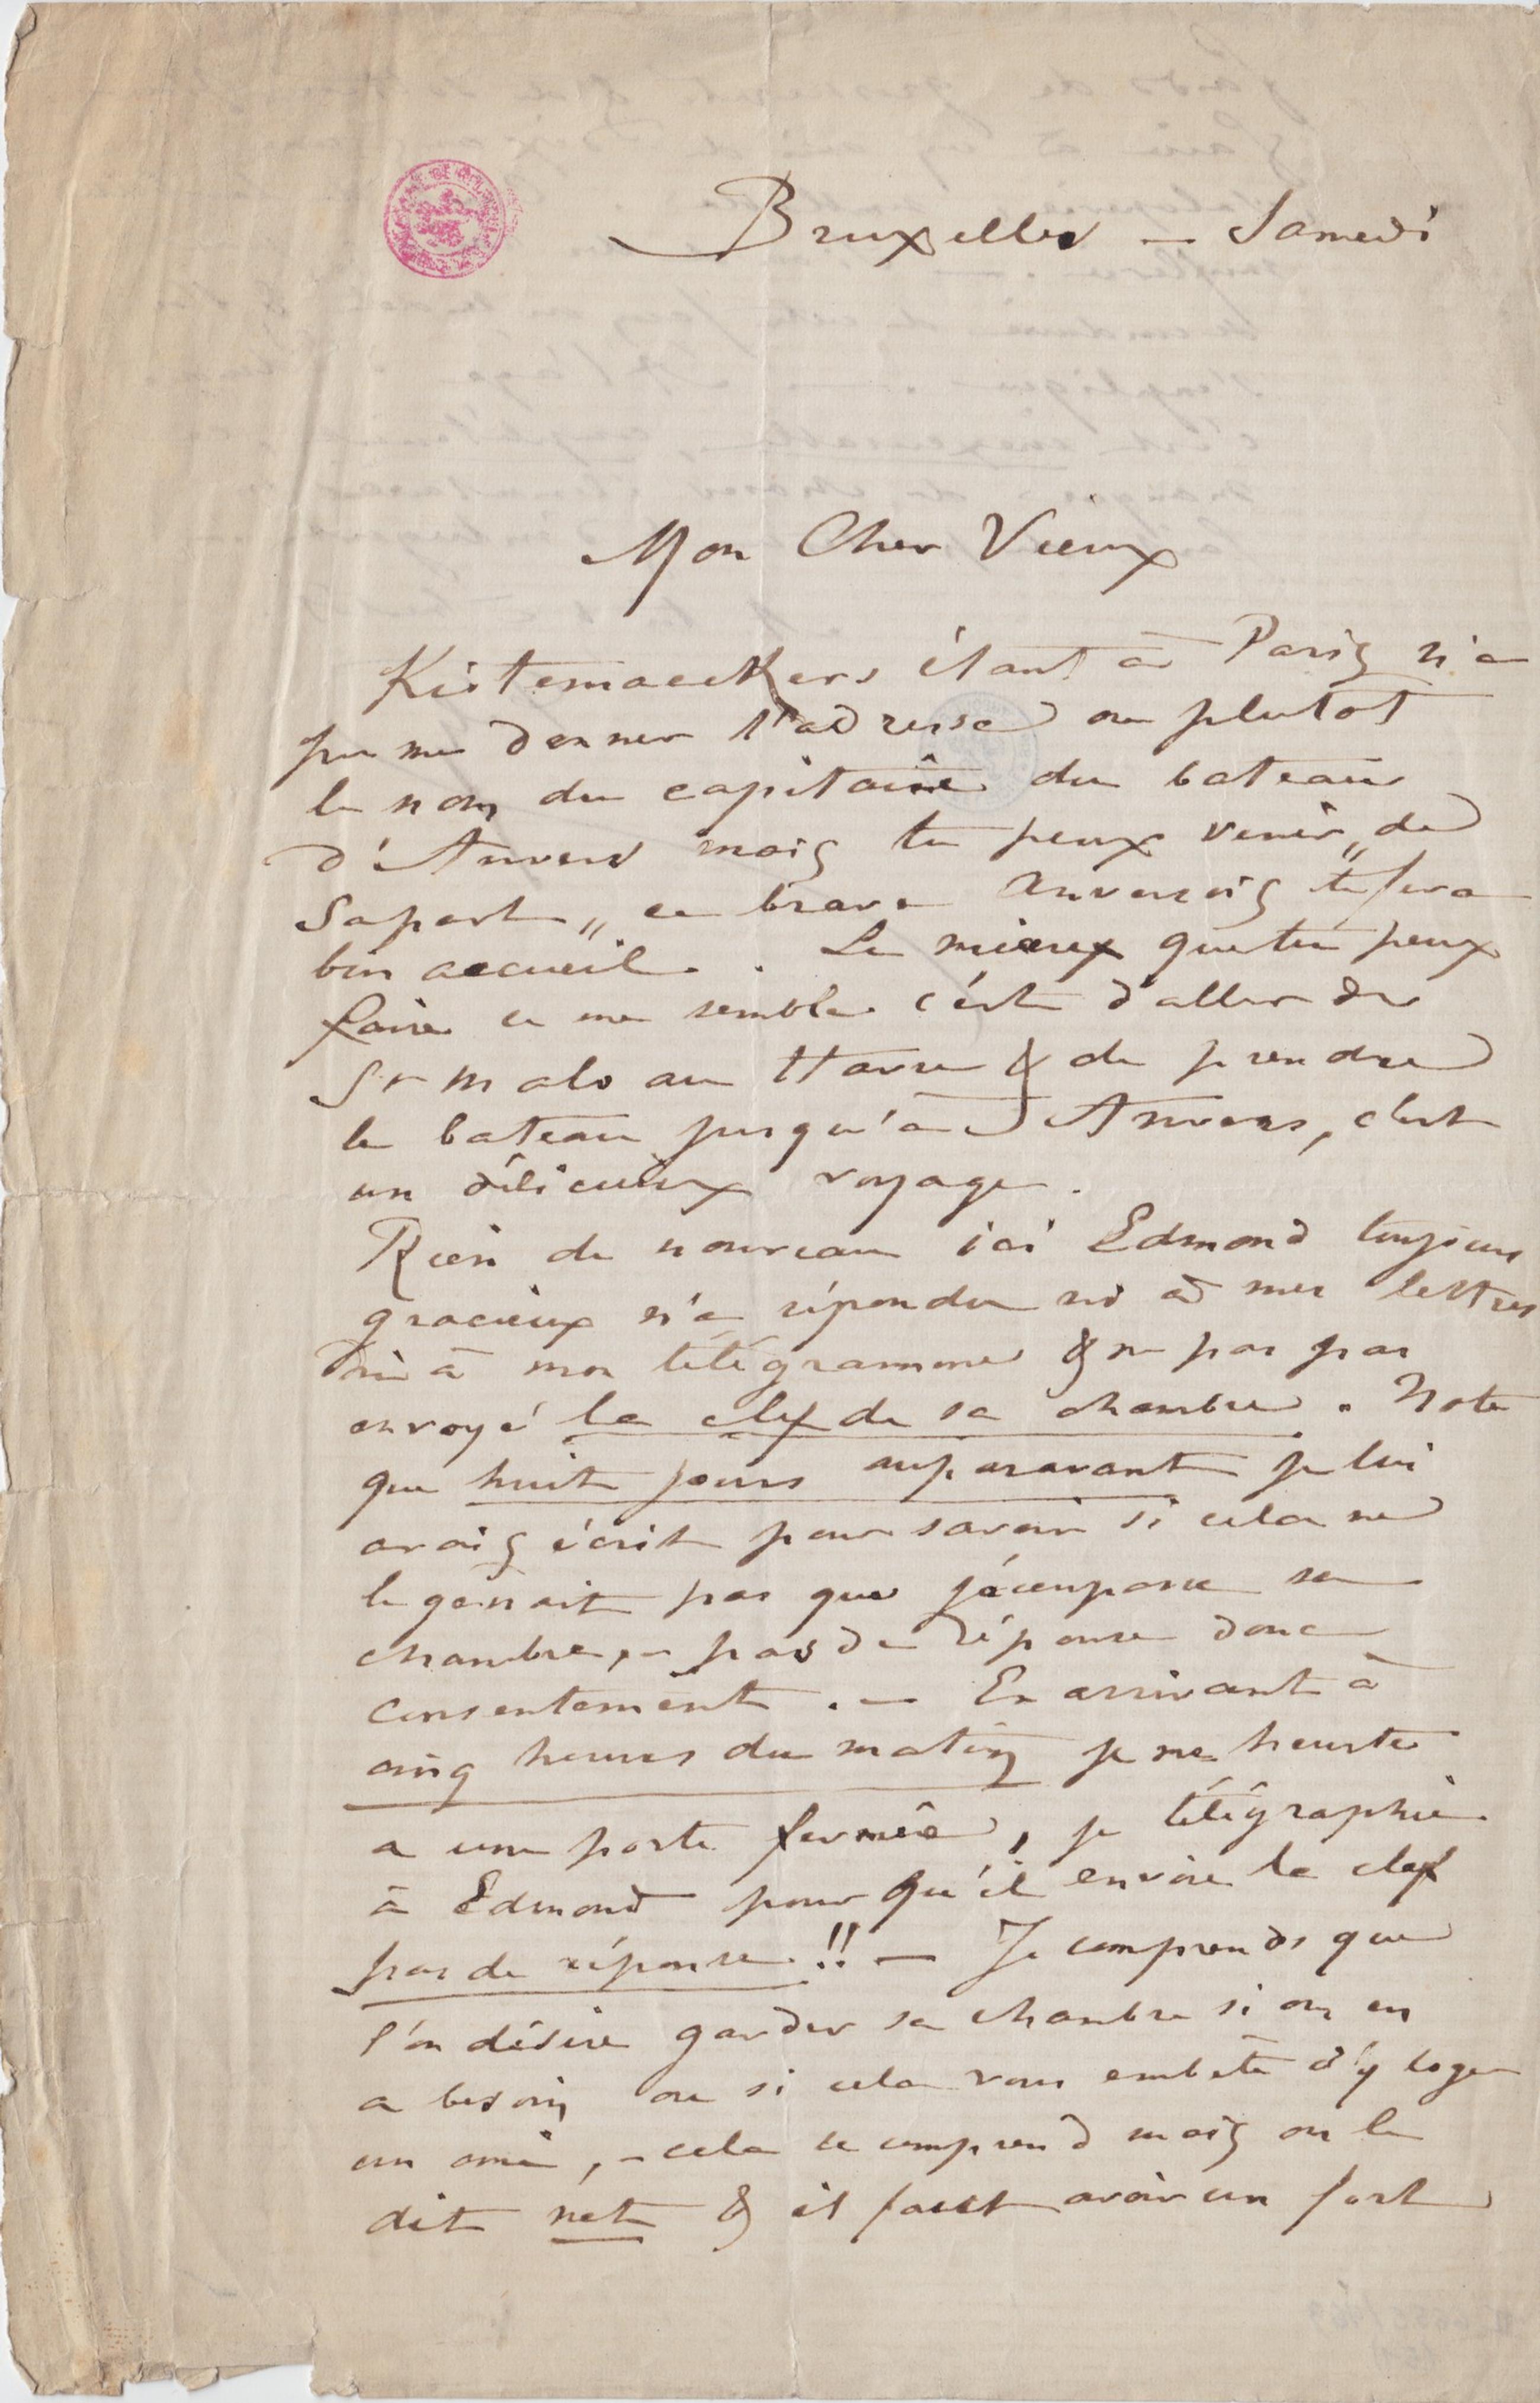 Bruxelles — Samedi
Mon Cher Vieux
Kistemaeckers étant à Paris n'a
pu me donner l'adresse ou plutot
le nom du capitaine du bateau
d'Anvers mais tu peux venir „de
sa part„ ce brave Anversois te fera
bon accueil. . Le mieux que tu peux
faire ce me semble c'est d'aller de
St Malo au Havre & de prendre
le bateau jusqu'à Anvers, c'est
un délicieux voyage.
Rien de nouveau ici Edmond toujours
gracieux n'a répondu ni à mes lettres
ni à mon télégramme & n pas pas
envoyé la clef de sa chambre. Note
que huit jours auparavant je lui
avais écrit pour savoir si cela ne
le gênait pas que j'occupasse sa
chambre, – pas de réponse donc
consentement. — En arrivant à
cinq heures du matin je me heurte
a une porte fermée, je télégraphie
à Edmond pour qu'il envoie la clef
pas de réponse!! — Je comprends que
l'on désire garder sa chambre si on en
a besoin ou si cela vous embête d'y loger
un ami, – cela se comprend mais on le
dit net & il faut avoir un fort